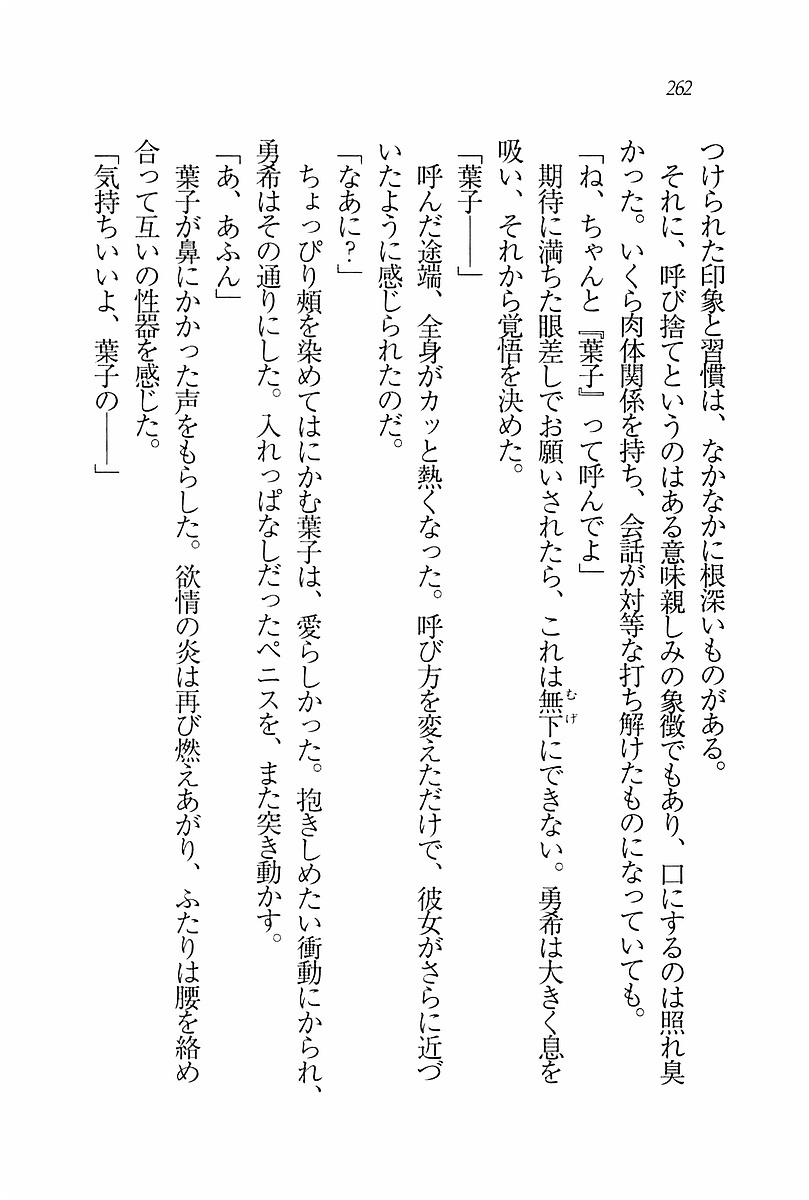 262
つけられた印象と習慣は、なかなかに根深いものがある。
それに、呼び捨てというのはある意味親しみの象徴でもあり、口にするのは照れ臭
かった。いくら肉体関係を持ち、会話が対等な打ち解けたものになっていても。
「ね、ちゃんと『葉子』って呼んでよ」
期待に満ちた眼差しでお願いされたら、これは無下にできない。勇希は大きく息を
むげ
吸い、それから覚悟を決めた。
「葉子――」
呼んだ途端、全身がカッと熱くなった。呼び方を変えただけで、彼女がさらに近づ
いたように感じられたのだ。
「なあに?」
ちょっぴり頬を染めてはにかむ葉子は、愛らしかった。抱きしめたい衝動にかられ、
勇希はその通りにした。入れっぱなしだったペニスを、また突き動かす。
「あ、あふん」
葉子が鼻にかかった声をもらした。欲情の炎は再び燃えあがり、ふたりは腰を絡め
合って互いの性器を感じた。
「気持ちいいよ、葉子の――」